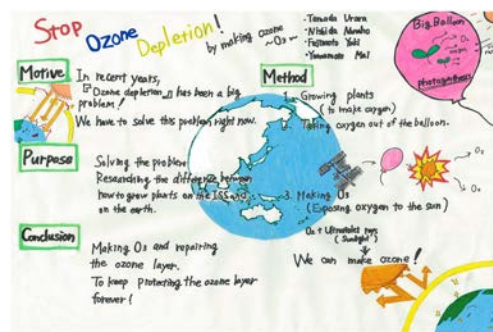 Stop Ozone Depletion!
by making ozone
~O₃~
・Tanada Urara
・Nishida Naoho
・Fujimoto Yuki
・Yamamoto Mai
Big Balloon
O₂
photosynthesis
Motive
In recent years,
『Ozone depletion』 has been a big
problem!
We have to solve this problem right now.
Purpose
Solving the problem
Researching the difference between
how to grow plants on the ISS and
on the earth.
Conclusion
Making O₃ and repairing
the ozone layer.
To keep protecting the ozone layer
forever!
Method
1. Growing plants
(to make oxygen)
2. Taking oxygen out of the balloon.
O₂
O₂
3. Making O₃
(Exposing oxygen to the sun)
O₂ + Ultraviolet rays
(Sunlight)
We can make ozone!